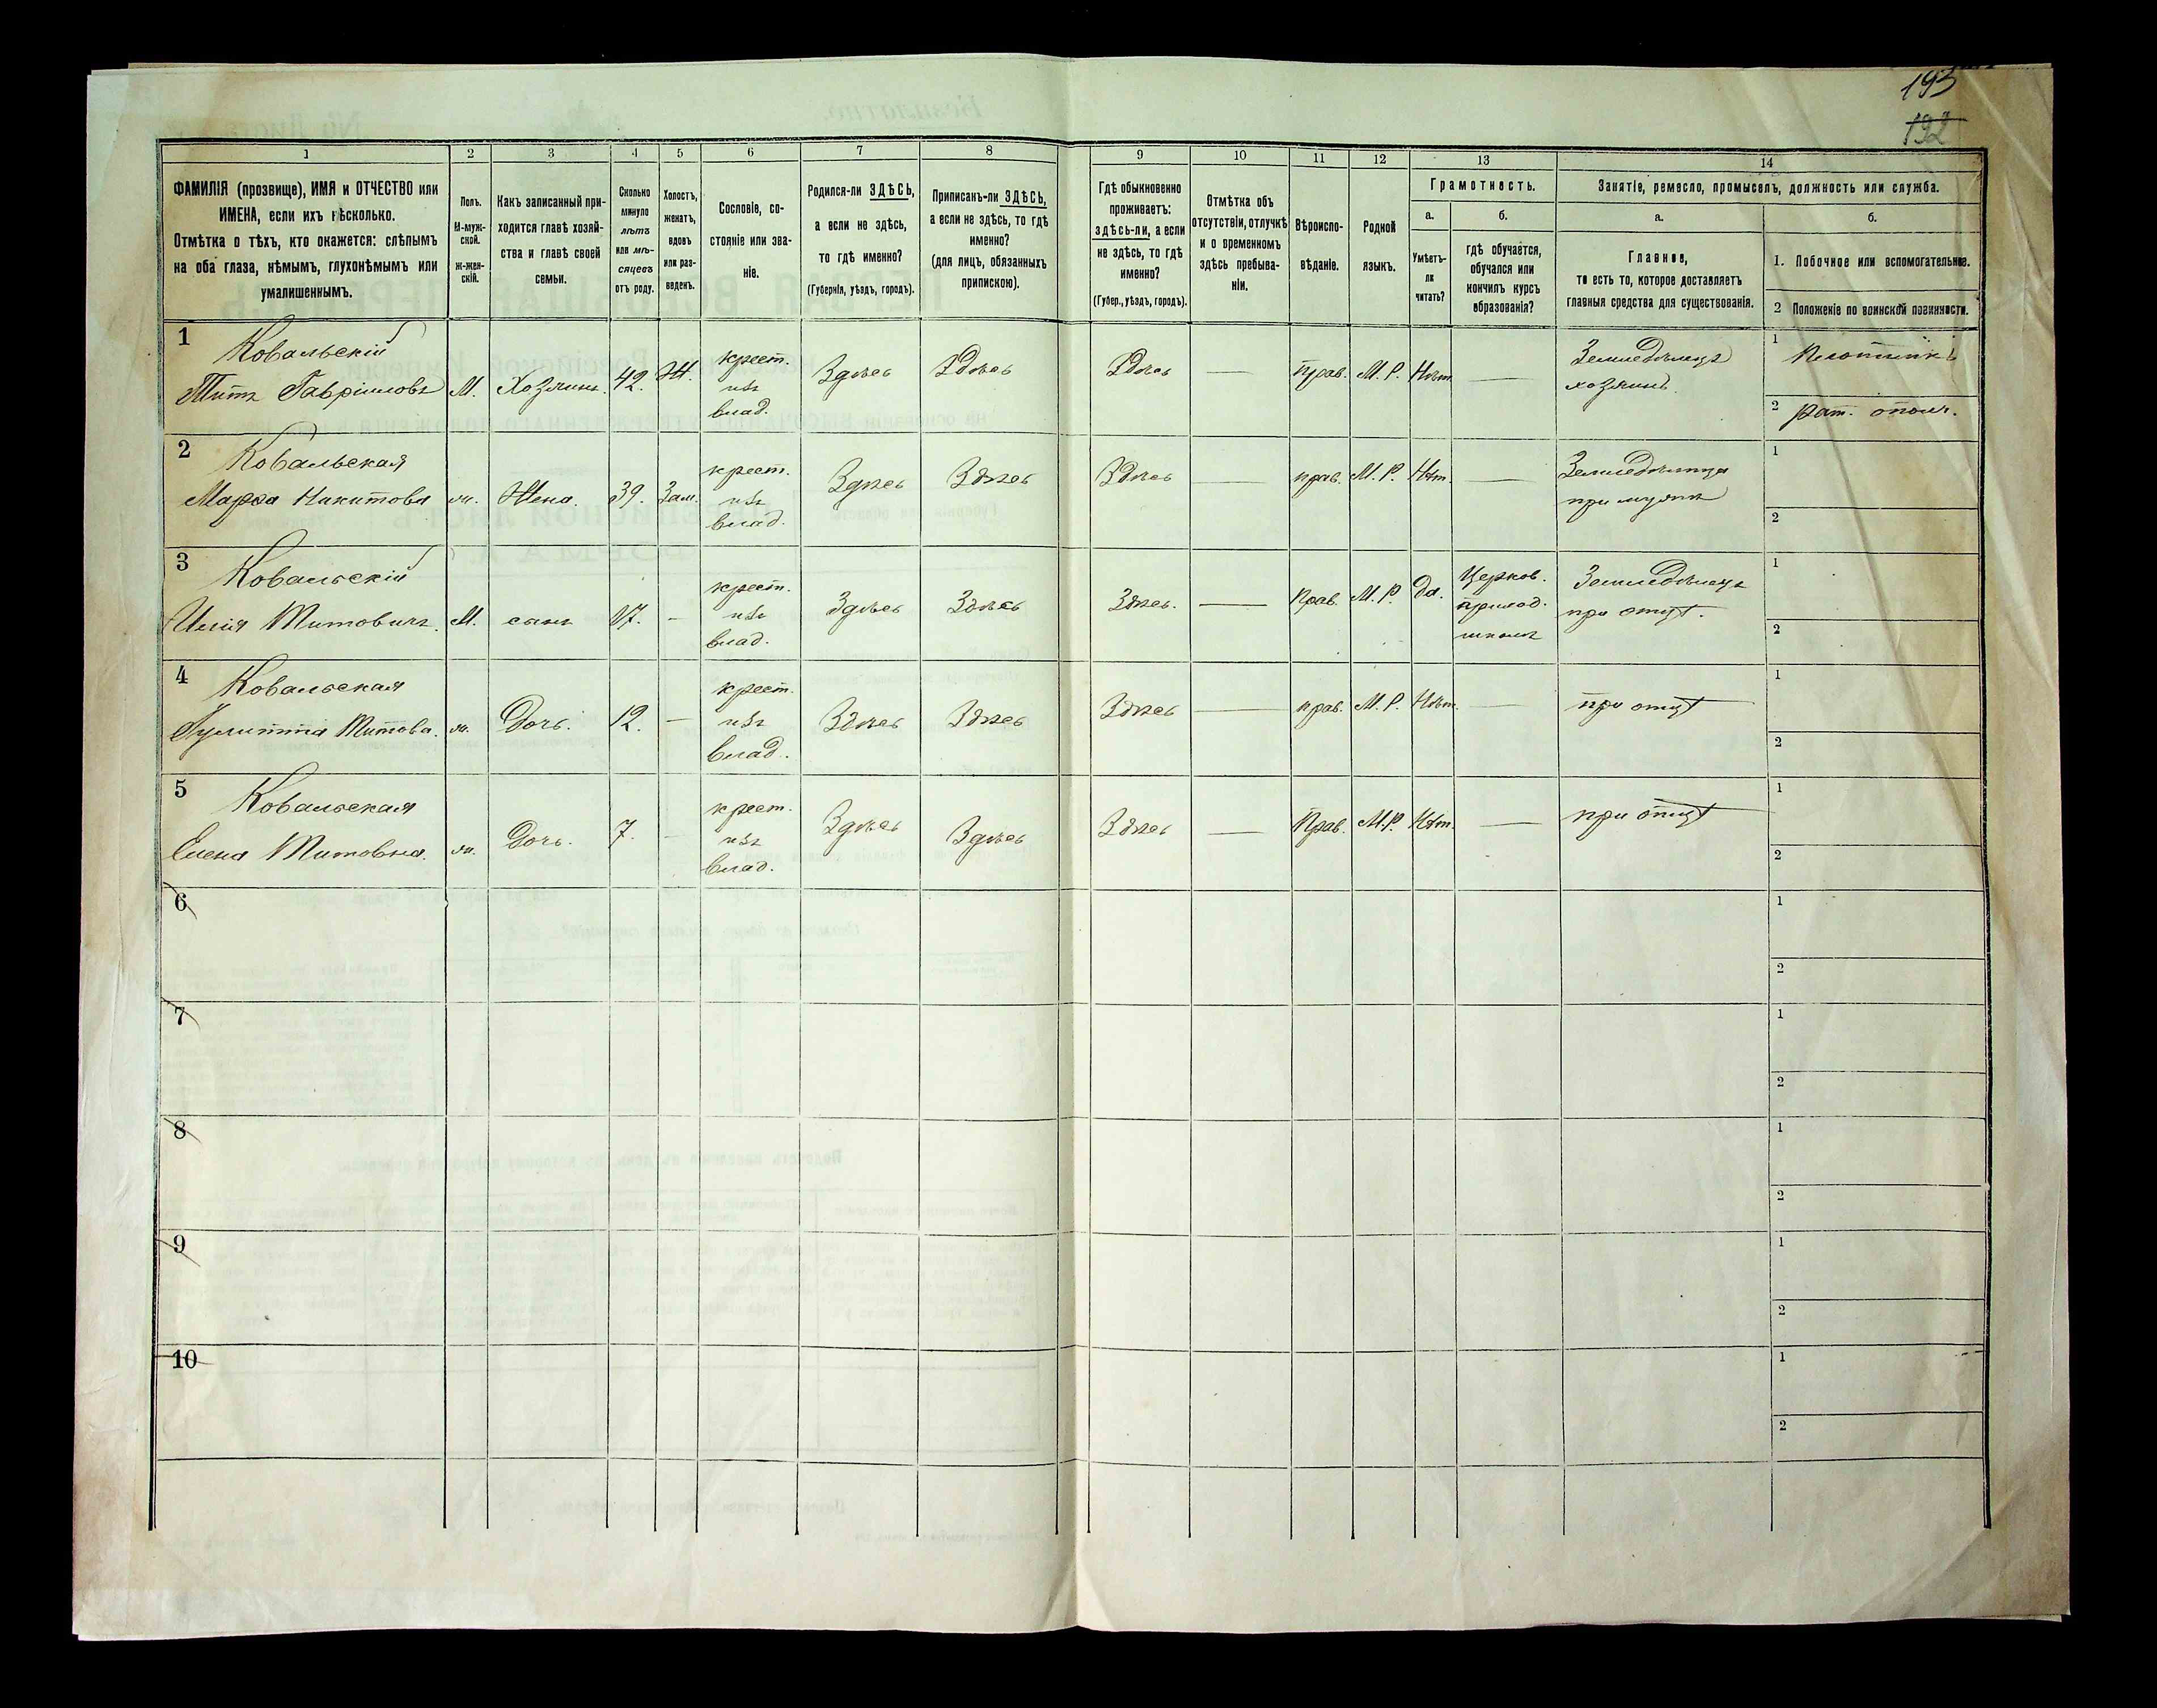 193
192
1 2 3 4 5 6 7 8 9 10 11 12 13 14
ФАМИЛІЯ (прозвище), ИМЯ и ОТЧЕСТВО или
ИМЕНА, если ихъ нѣсколько.
Отмѣтка о тѣхъ, кто окажется: слѣпымъ
на оба глаза, нѣмымъ, глухонѣмымъ или
умалишеннымъ.
Полъ.
М-муж-
ской.
ж-жен-
скій.
Какъ записанный при-
ходится главѣ хозяй-
ства и главѣ своей
семьи.
Сколько
минуло
лѣтъ
или мѣ-
сяцевъ
отъ роду.
Холостъ,
женатъ,
вдовъ
или раз-
веденъ.
Сословіе, со-
стояніе или зва-
ніе.
Родился-ли ЗДѢСЬ,
а если не здѣсь,
то гдѣ именно?
(Губернія, уѣздъ, городъ).
Приписанъ-ли ЗДѢСЬ,
а если не здѣсь, то гдѣ
именно?
(для лицъ, обязанныхъ
припискою).
Гдѣ обыкновенно
проживаетъ:
здѣсь-ли, а если
не здѣсь, то гдѣ
именно?
(Губер., уѣздъ, городъ).
Отмѣтка объ
отсутствіи, отлучкѣ
и о временномъ
здѣсь пребыва-
ніи.
Вѣроиспо-
вѣданіе.
Родной
языкъ.
Грамотность.
а.
Умѣетъ-
ли
читать?
б.
гдѣ обучается,
обучался или
кончилъ курсъ
образованія?
Занятіе, ремесло, промыселъ, должность или служба.
а.
Главное,
то есть то, которое доставляетъ
главныя средства для существованія.
б.
1. Побочное или вспомогательное.
2 Положеніе по воинской повинности.
1
Ковальскій
Титъ Гавріиловъ
М.
Хозяинъ.
42.
Ж.
крест.
изъ
влад.
Здѣсь
Здѣсь
Здѣсь
—
прав.
М. Р.
Нѣт.
—
Земледѣлецъ
хозяинъ.
1 Плотникъ
2 рат. ополч.
2
Ковальская
Марѳа Никитова
ж.
Жена.
39.
Зам.
крест.
изъ
влад.
Здѣсь
Здѣсь
Здѣсь
—
прав.
М. Р.
Нѣт.
—
Земледѣлица
при мужѣ
1
2
3
Ковальскій
Илія Титовичъ.
М.
сынъ
17.
-
крест.
изъ
влад.
Здѣсь
Здѣсь
Здѣсь.
—
прав.
М. Р.
Да.
Церков.
приход.
школѣ
Земледѣлецъ
при отцѣ.
1
2
4
Ковальская
Титова.
ж.
Дочь.
12.
—
крест.
изъ
влад.
Здѣсь
Здѣсь
Здѣсь
—
прав.
М. Р.
Нѣт.
—
при отцѣ
1
2
5
Ковальская
Елена Титовна.
ж.
Дочь.
7.
—
крест.
изъ
влад.
Здѣсь
Здѣсь
Здѣсь
—
Прав.
М.Р.
Нѣт.
—
при отцѣ
1
2
6
1
2
7
1
2
8
1
2
9
1
2
10
1
2